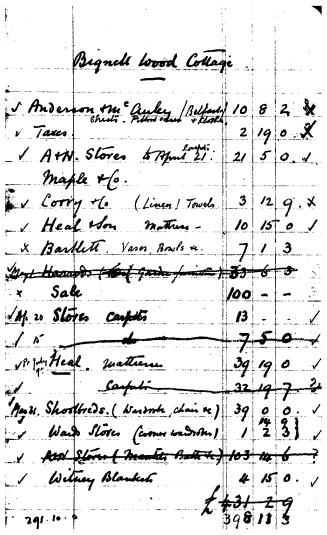 Bignell Wood Cottage
✓ Anderson & McAuley / Belfast 10 8 2 x
Sheets. Pillow cases &
✓ Taxes 2 19 0 x
✓ A & N. Stores to April 21. carpets 21 5 0 ✓
Maple & Co.
✓ & Co. (Linen) Towels 3 12 9. x
✓ Heal & Son Mattress - 10 15 0 ✓
x Bartlett. Vases, Bowls &c. 7 1 3
Harrods ( Garden furniture) 33 6 3
x Sale 100 - -
✓ Ap. 20 Stores carpets 13 - ✓
✓ 15 do 7 5 0 ✓
✓ July Heal. Mattress 39 19 0 ✓
✓ Carpets 32 19 7
✓ May 21. Shoolbreds. (Wardrobe, chair &c) 39 0 0 ✓
14 9
✓ Stores (corner wardrobe) 1 2 3 ✓
✓ A & N Stores ( Bath &c) 103 14 6 ?
✓ Witney Blankets 4 15 0. ✓
£ 431 2 9
291. 10. 0 398 18 3